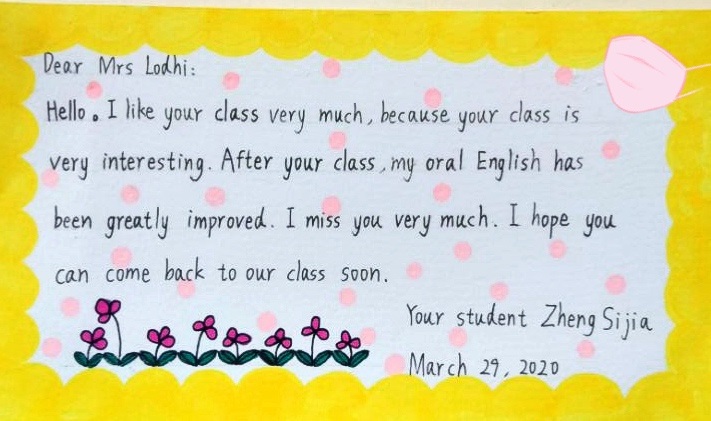 Dear Mrs Lodhi:
Hello。I like your class very much, because your class is
very interesting. After your class, my oral English has
been greatly improved. I miss you very much. I hope you
can come back to our class soon.
Your student Zheng Sijia
March 29, 2020